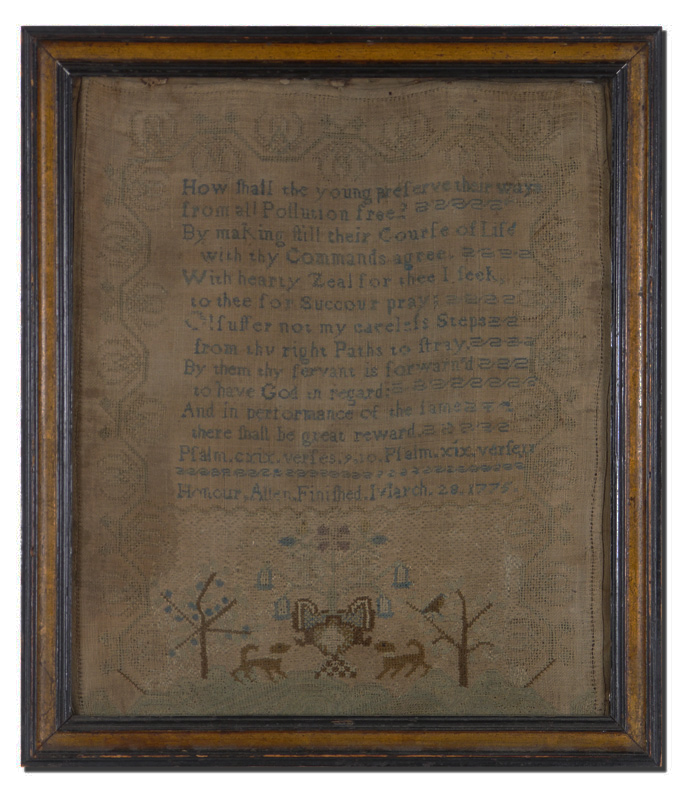 How ſhall the young preſerve their ways
from all Pollution free?
By making ſtill their Courſe of Life
with thy Commands agree.
With hearty Zeal for thee I ſeek,
to thee for Succour pray;
O! ſuffer not my careleſs Steps
from thy right Paths to ſtray.
By them thy ſervant is forwarn'd
to have God in regard:
And in performance of the ſame
there ſhall be great reward.
Pſalm. cxix. verſes. 9. 10. Pſalm. xix. verſe
Honour. Allen. Finiſhed. March. 28. 1775.